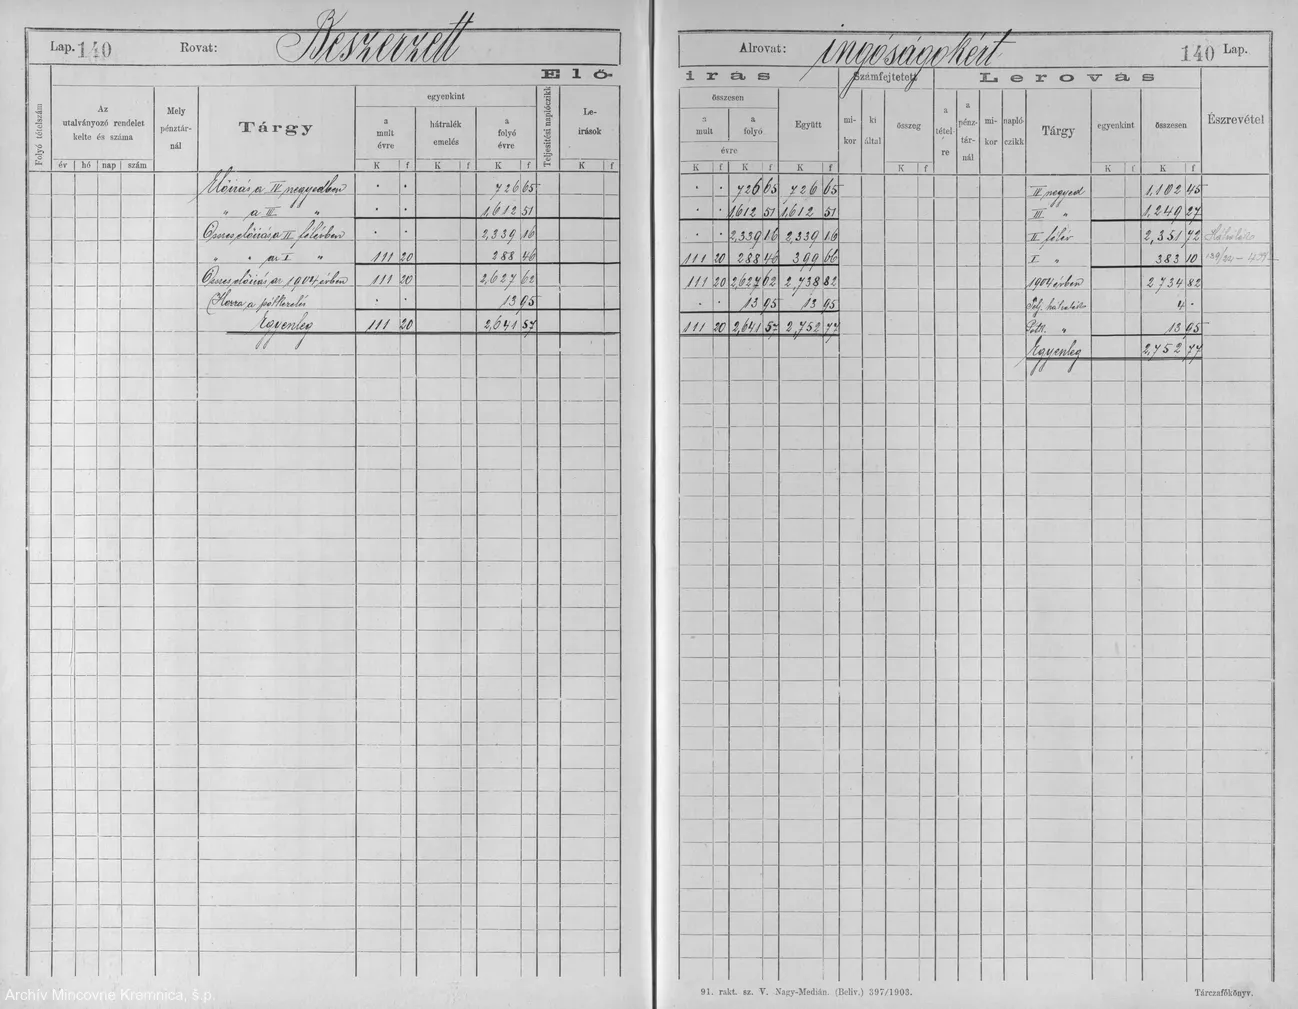 Lap. 140 Rovat: Beszerzett
Elő-
Folyó tételszám
Az utalványozó rendelet kelte és száma
Mely pénztár-nál
Tárgy
egyenkint
Teljesítési naplóczikk
Le-írások
a mult évre
hátralék emelés
a folyó évre
év hó nap szám K f K f K f K f
Előírás a IV negyedben · · 726 65
" a III " · · 1,612 51
Összes előírás a II félévben 2,339 16
" " az I " 111 20 288 46
Összes előírás az 1904 évben 111 20 2,627 62
Hozzá a pótkezelés · · 13 95
Egyenleg 111 20 2,641 57
Archív Mincovne Kremnica, š.p.
Alrovat: ingóságokért 140 Lap.
irás Számfejtetett Lerovás
összesen
a mult
a folyó
évre
Együtt
mi-kor
ki által
összeg
a tétel-re
a pénz-tár-nál
mi-kor
napló-czikk
Tárgy
egyenkint
összesen
Észrevétel
K f K f K f K f K f K f
· · 726 65 726 65 IV negyed 1,102 45
· · 1,612 51 1,612 51 III " 1,249 27
· · 2,339 16 2,339 16 II félév 2,351 72
111 20 288 46 399 66 I " 383 10
111 20 2,627 62 2,738 82 1904 évben 2,734 82
· · 13 95 13 95 4 ·
111 20 2,641 57 2,752 77 Pótk. " 13 95
Egyenleg 2,752 77
91. rakt. sz. V. Nagy-Medián. (Beliv.) 397/1903.
Tárczafőkönyv.